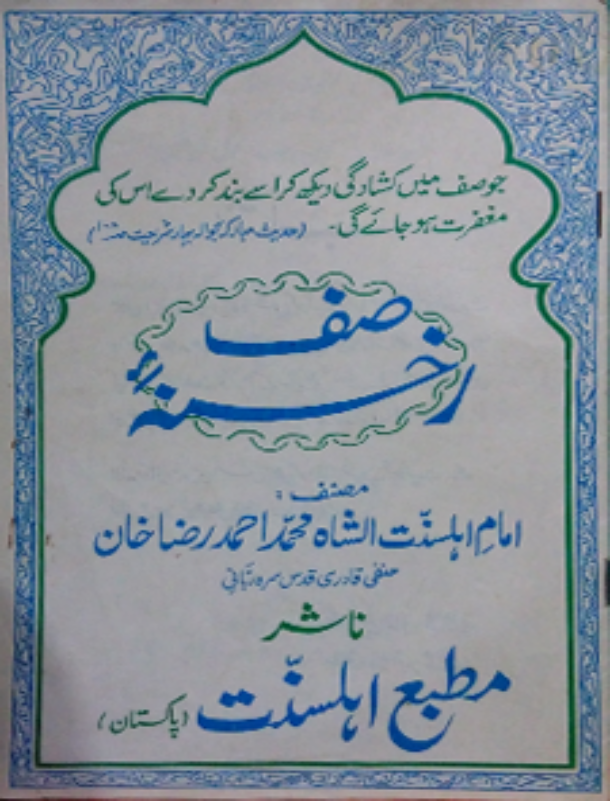 جو صف میں کشادگی دیکھ کر اسے بند کر دے اس کی
مغفرت ہو جائے گی۔ (حدیث مبارکہ بحوالہ بہار شریعت
رخنۂ صف
مصنف :
امامِ اہلسنّت الشاہ محمّد احمد رضا خان
حنفی قادری قدس سرہ ربّانی
ناشر
مطبع اہلسنّت (پاکستان)